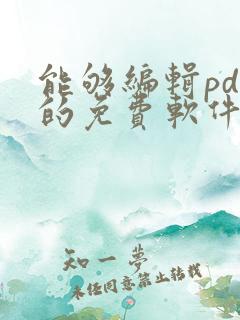 能够编辑pd
的免费软件
知一梦
未经同意禁止转载